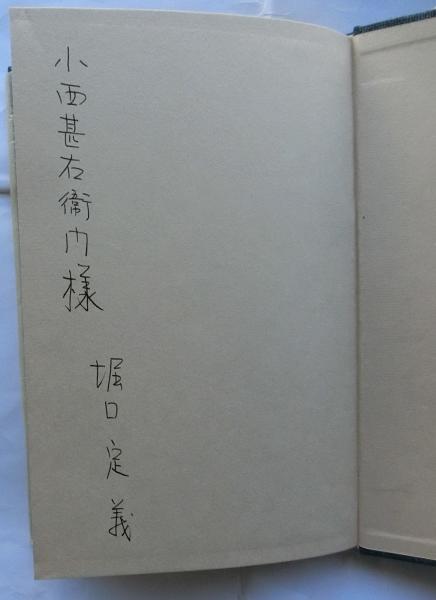 小西甚右衛門様
堀口定義